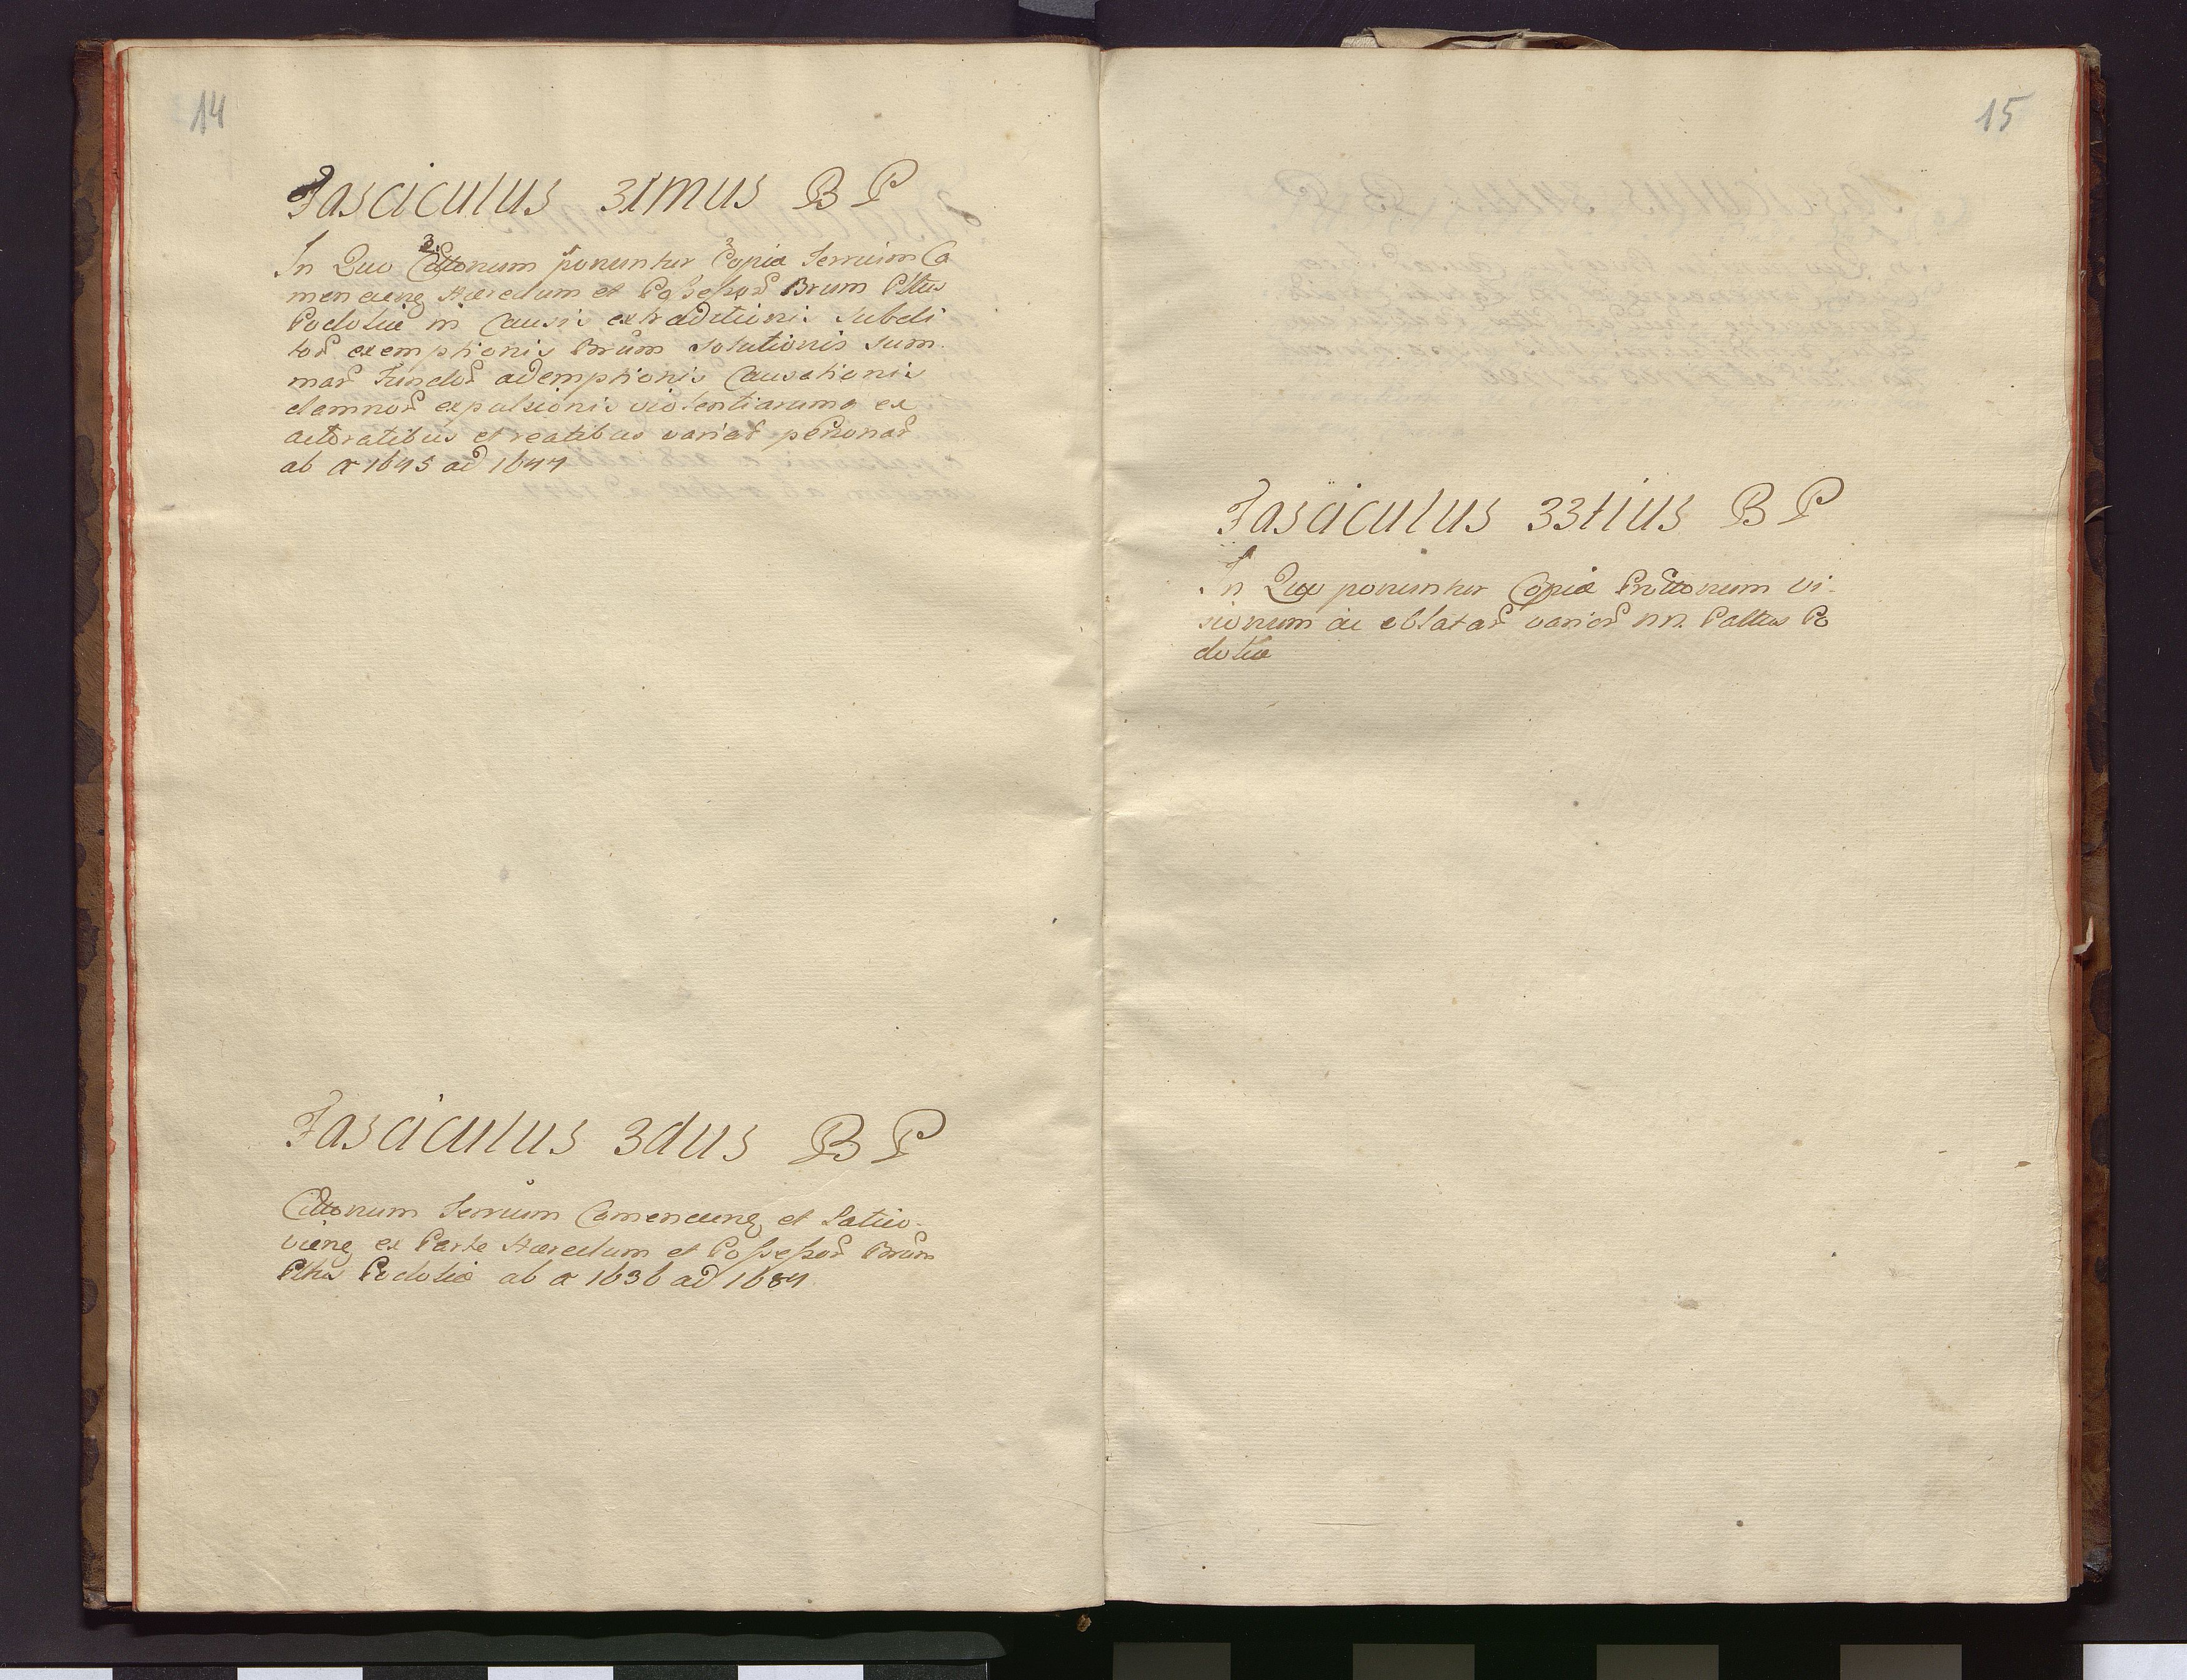 14
Fasciculus 31mus B P
In Quo Cittonum ponuntur Copiæ Terrium Ca
menecens Hæredum et Possessor Brum Pltus
Podoliæ in Causis extraditionis Subdi
tor exemptionis Brum solutionis sum
mar Fundor ademptionis Causationis
damnor expulsionis violentiarumq ex
actoratibus et reatibus variar personar
ab a 1645 ad 1647
Fasciculus 3dus B P
Cittonum Terrium Camenecens et Latico-
viens ex Parte Hæredum et Possessor Brum
Pltus Podoliæ ab a 1636 ad 1687
15
Fasciculus 33tius B P
In Quo ponuntur Copiæ Prottonum vi-
sionum ac oblatar varior nn. Paltus Po
doliæ